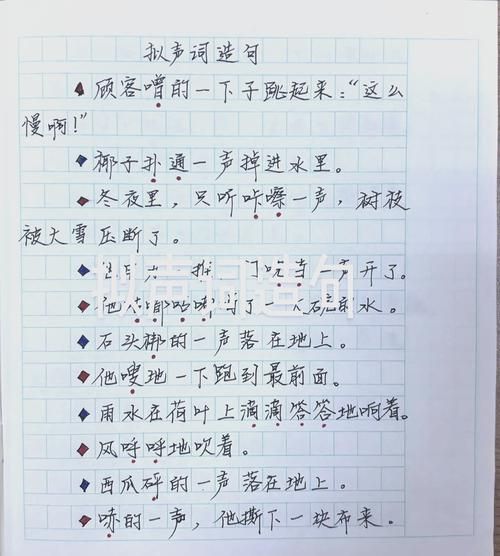 拟声词造句
顾客噌的一下子跳起来:“这么
慢啊!”
椰子扑通一声掉进水里。
冬夜里,只听咔嚓一声,树枝
被大雪压断了。
门吭当一声开了。
他咕嘟咕嘟喝了一大碗凉水。
石头梆的一声落在地上。
他嗖地一下跑到最前面。
雨水在荷叶上滴滴答答地响着。
风呼呼地吹着。
西瓜砰的一声落在地上。
哧的一声,他撕下一块布来。
拟声词造句